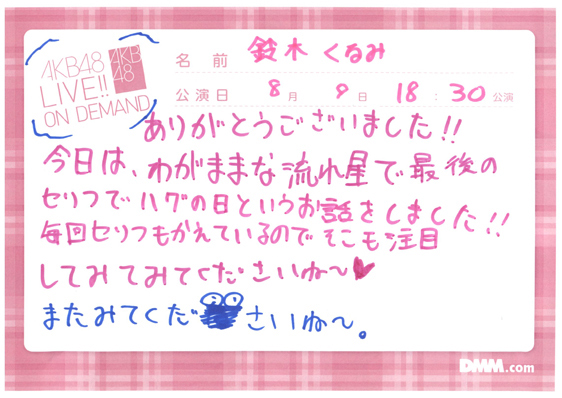 AKB48
LIVE!!
ON DEMAND
AKB
48
名前 鈴木くるみ
公演日 8月 9日 18:30公演
ありがとうございました!!
今日は、わがままな流れ星で最後の
セリフでハグの日というお話をしました!!
毎回セリフもかえているのでそこも注目
してみてみてくださいね〜♥
またみてくださいね〜。
DMM.com